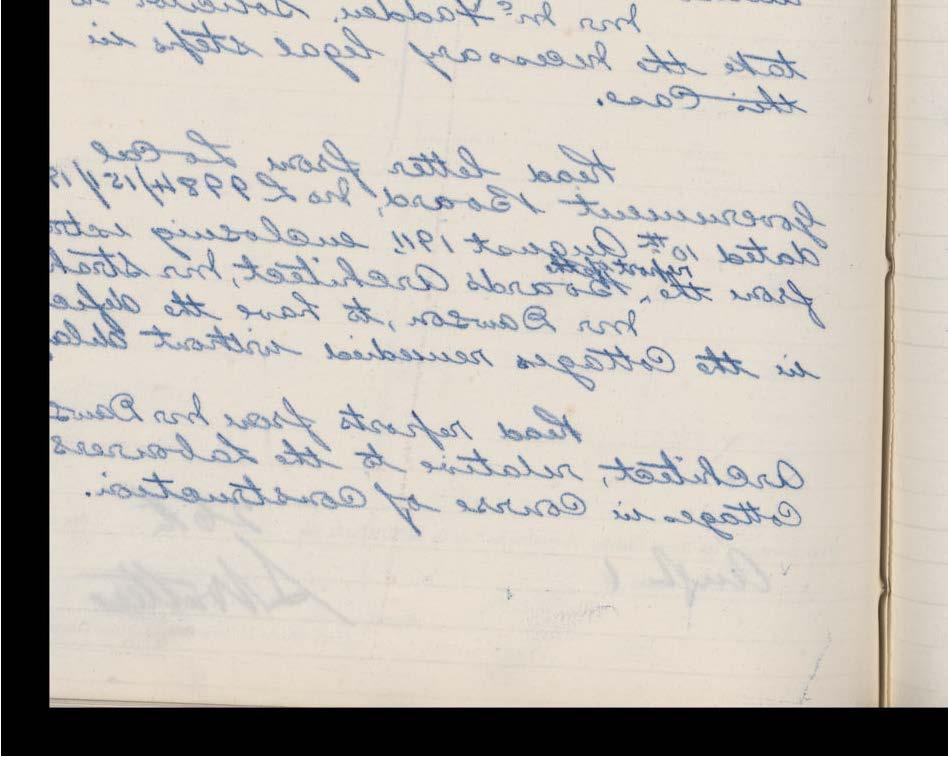 Mr McFadden, Solicitor to
take the necessary legal steps in
this Case.
Read letter from Local
Government Board, No L 9984/151/19
dated 10th August 1911, enclosing
from the report of the Board's Architect, Mr
Mr Dawson, to have the defe
in the Cottages remedied without dela
Read reports from Mr Daws
Architect, relative to the Labourers
Cottages in Course of Construction.